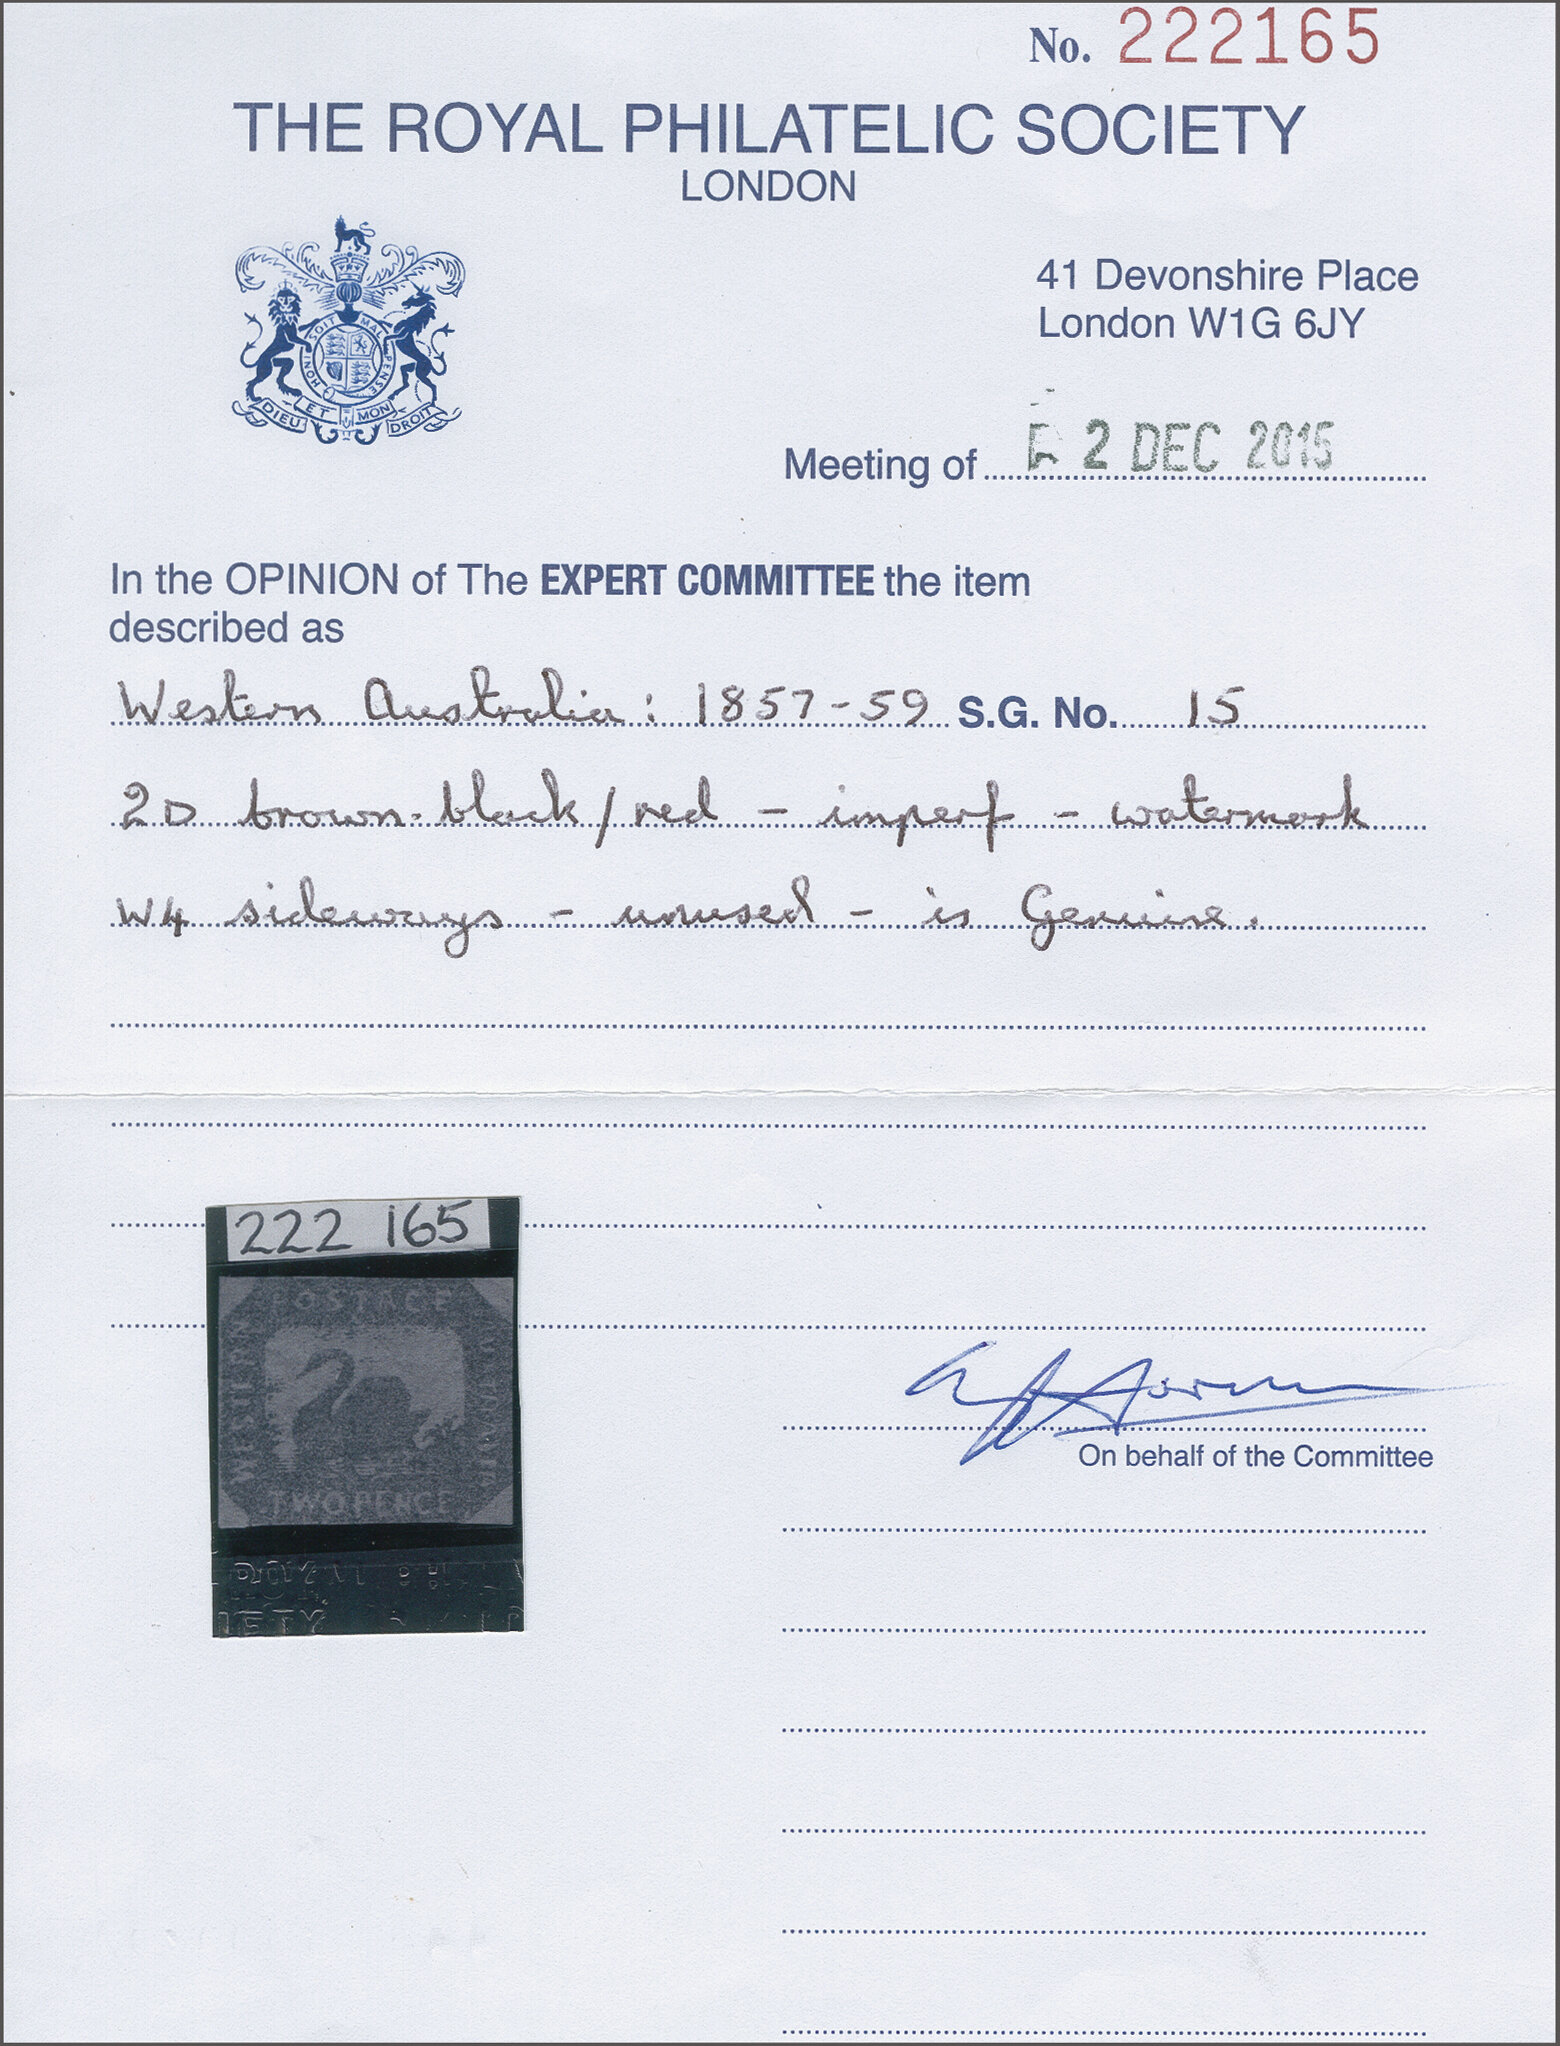 No. 222165
THE ROYAL PHILATELIC SOCIETY
LONDON
41 Devonshire Place
London W1G 6JY
HONI SOIT MAL PENSE
DIEU ET MON DROIT
Meeting of 2 DEC 2015
In the OPINION of The EXPERT COMMITTEE the item
described as
Western Australia: 1857-59 S.G. No. 15
2D brown-black/red - imperf - watermark
W4 sideways - unused - is Genuine.
222 165
POSTAGE
WESTERN
AUSTRALIA
TWO PENCE
On behalf of the Committee